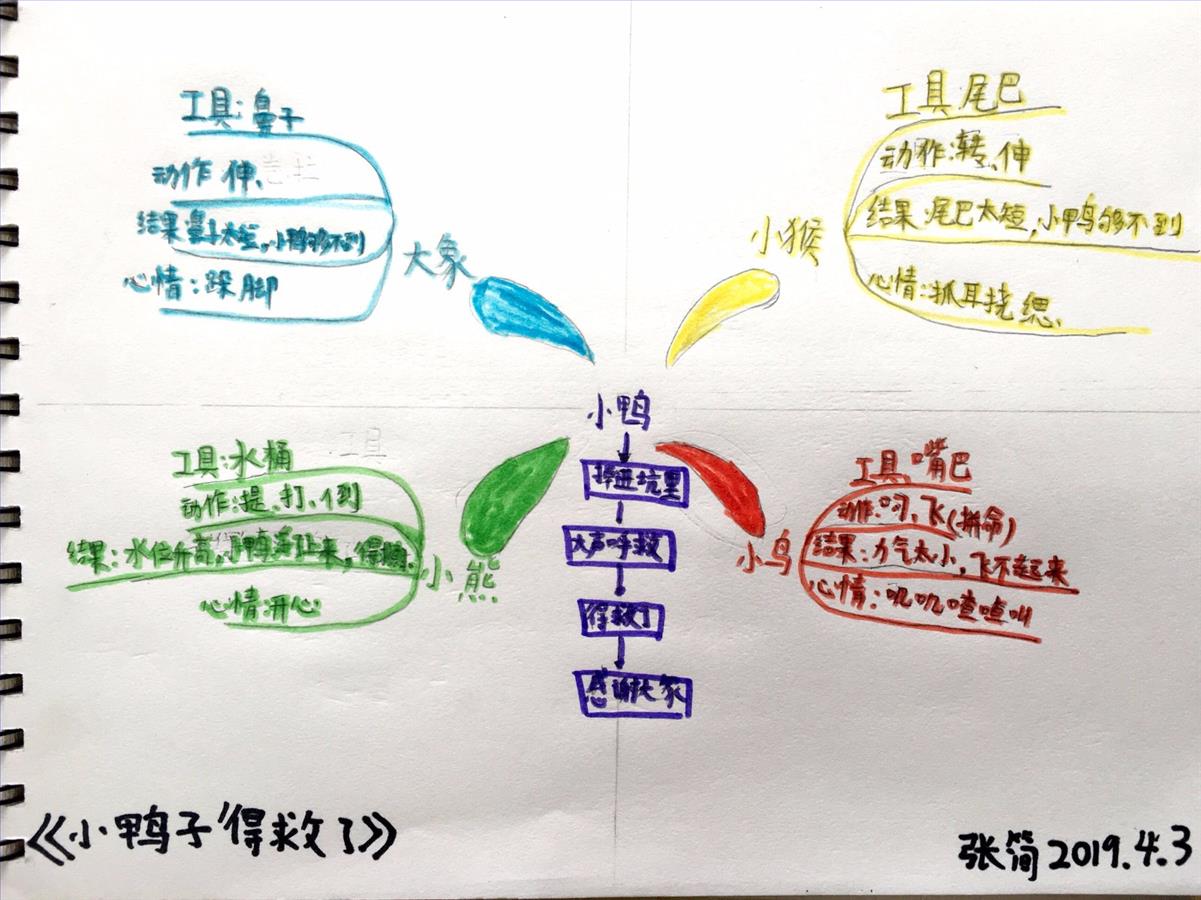 工具:鼻子
动作 伸、
结果 鼻子太短,小鸭够不到
心情:跺脚
大象
工具 尾巴
动作:转、伸
结果:尾巴太短,小鸭够不到
心情:抓耳挠缌、
小猴
小鸭
掉进坑里
大声呼救
得救了
感谢大家
工具:水桶
动作:提、打、倒
结果:水位升高,小鸭浮上来,得救
心情:开心
小熊
工具 嘴巴
动作:叼、飞(拼命)
结果:力气太小,飞不起来
心情:叽叽喳喳叫
小鸟
《小鸭子得救了》
张简 2019.4.3